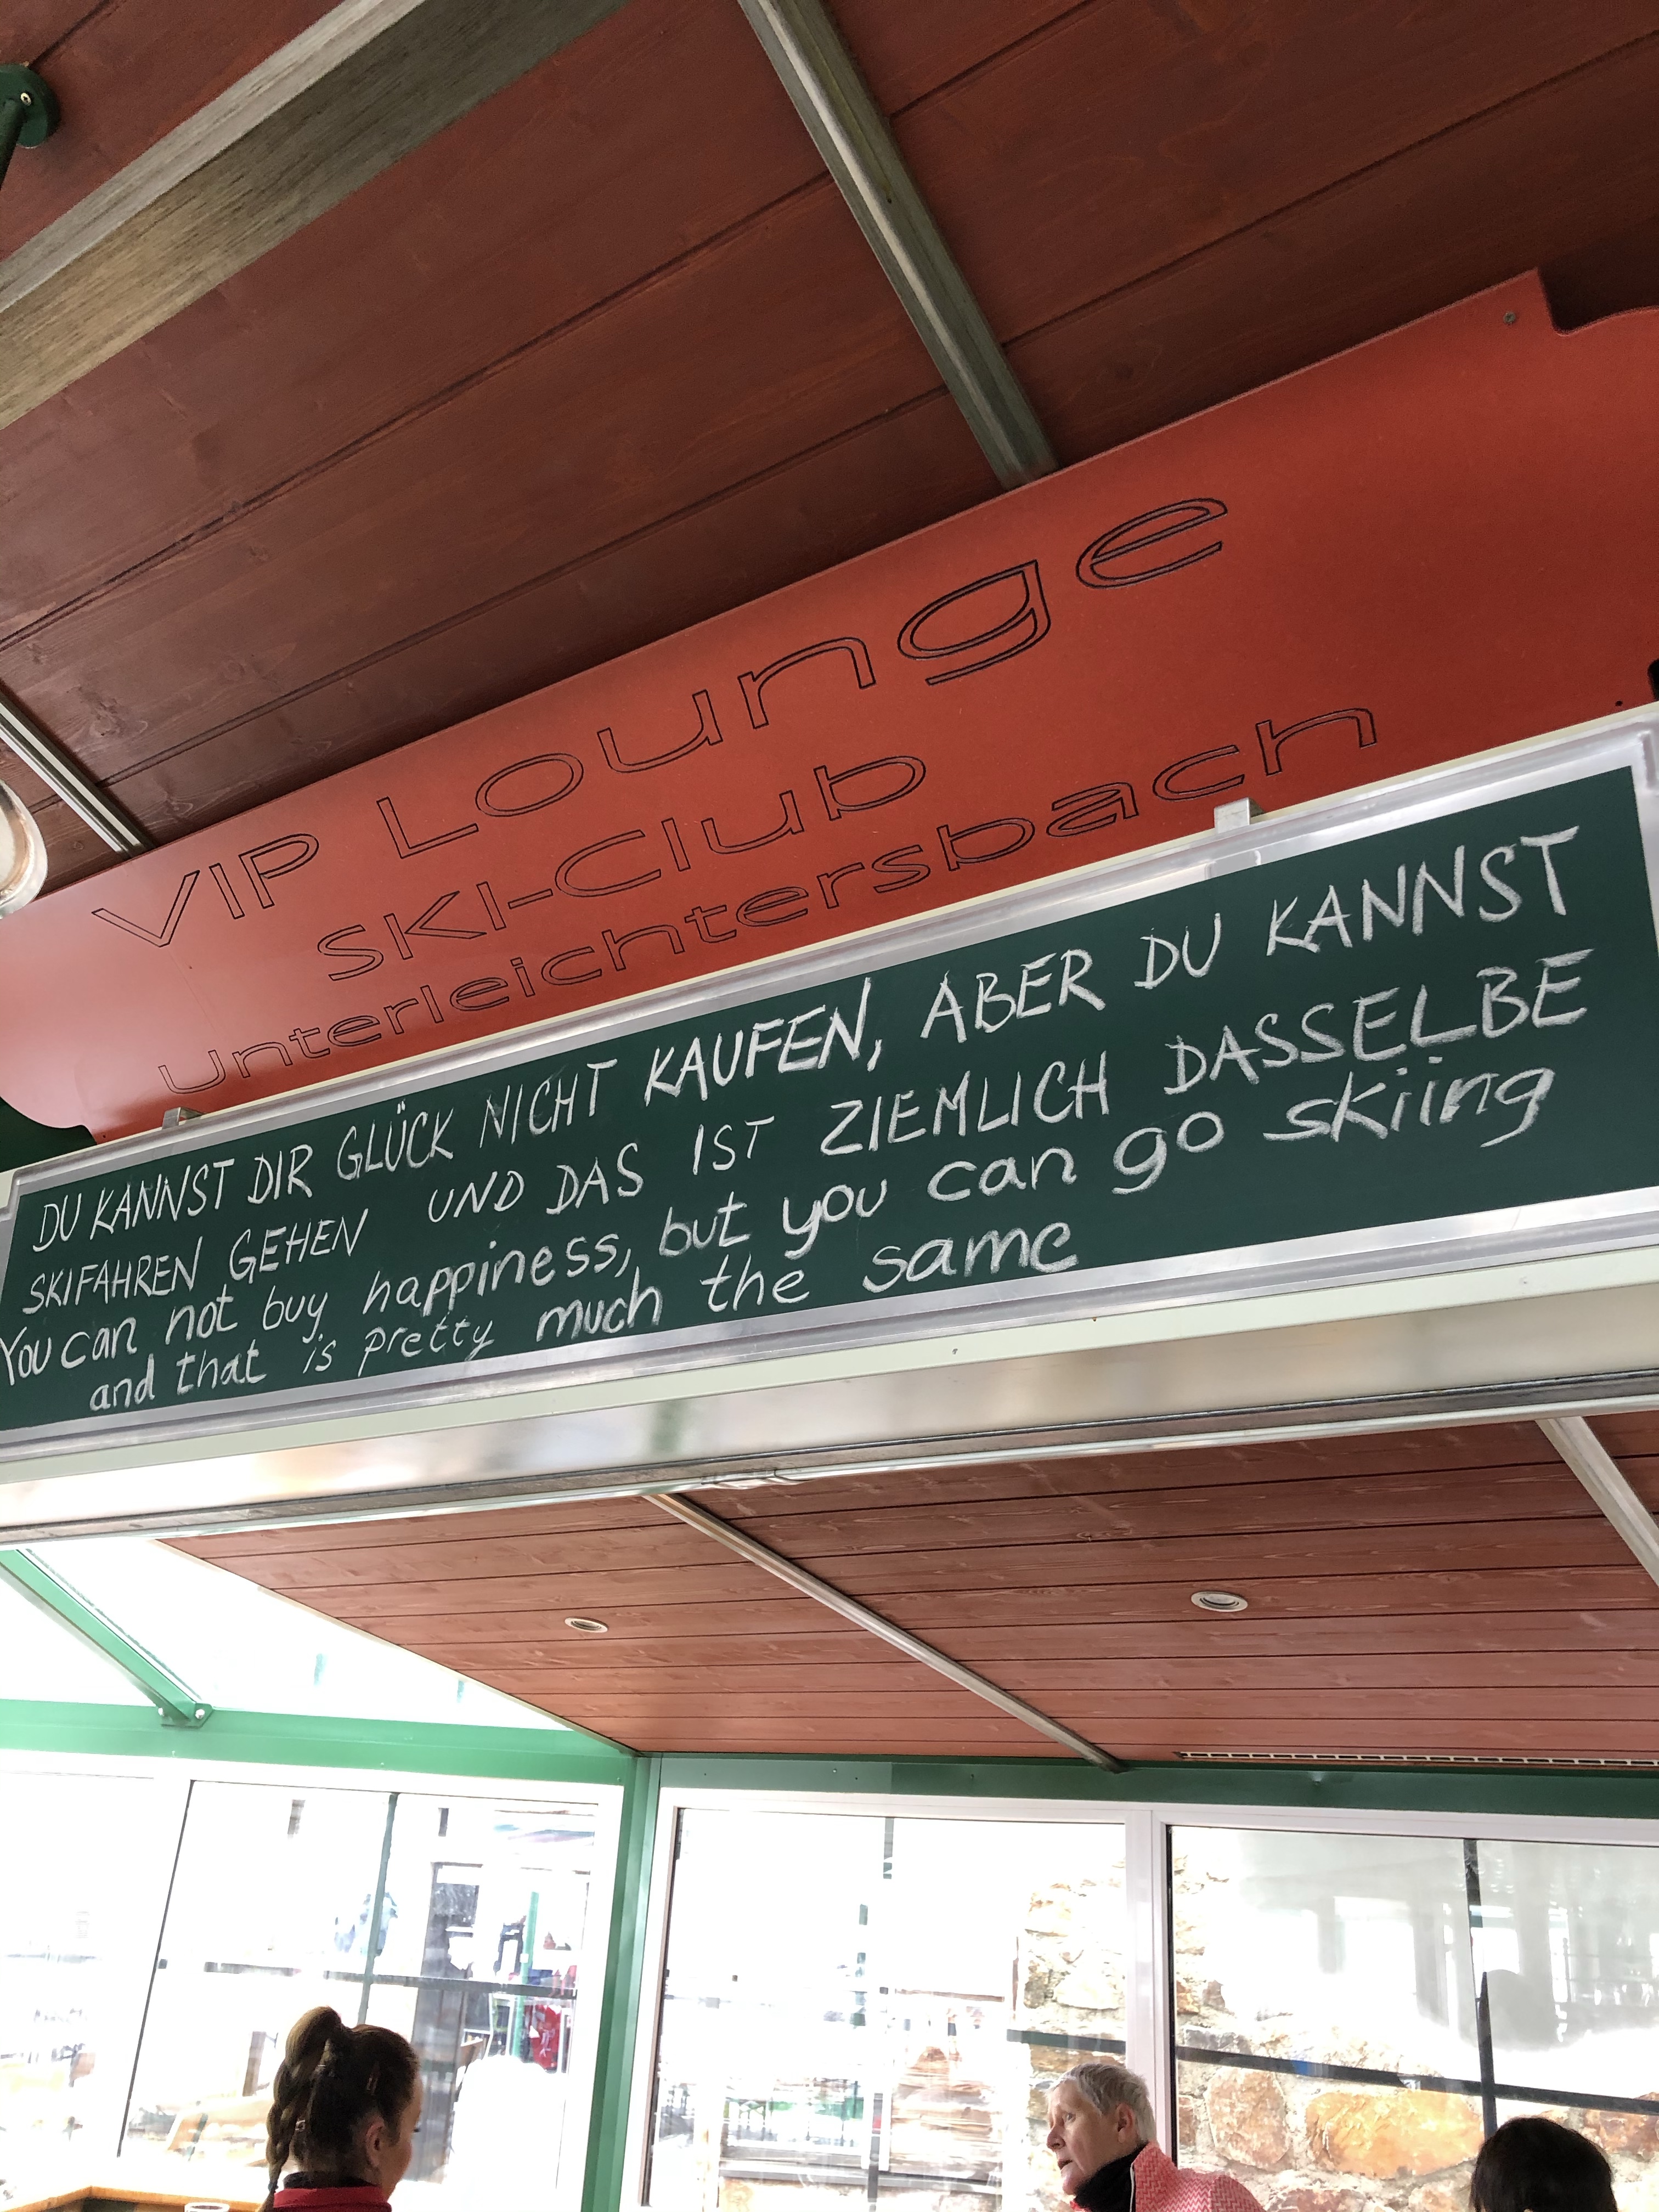 VIP Lounge
SKI-Club
Unterleichtersbach
DU KANNST DIR GLÜCK NICHT KAUFEN, ABER DU KANNST
SKIFAHREN GEHEN UND DAS IST ZIEMLICH DASSELBE
You can not buy happiness, but you can go skiing
and that is pretty much the same